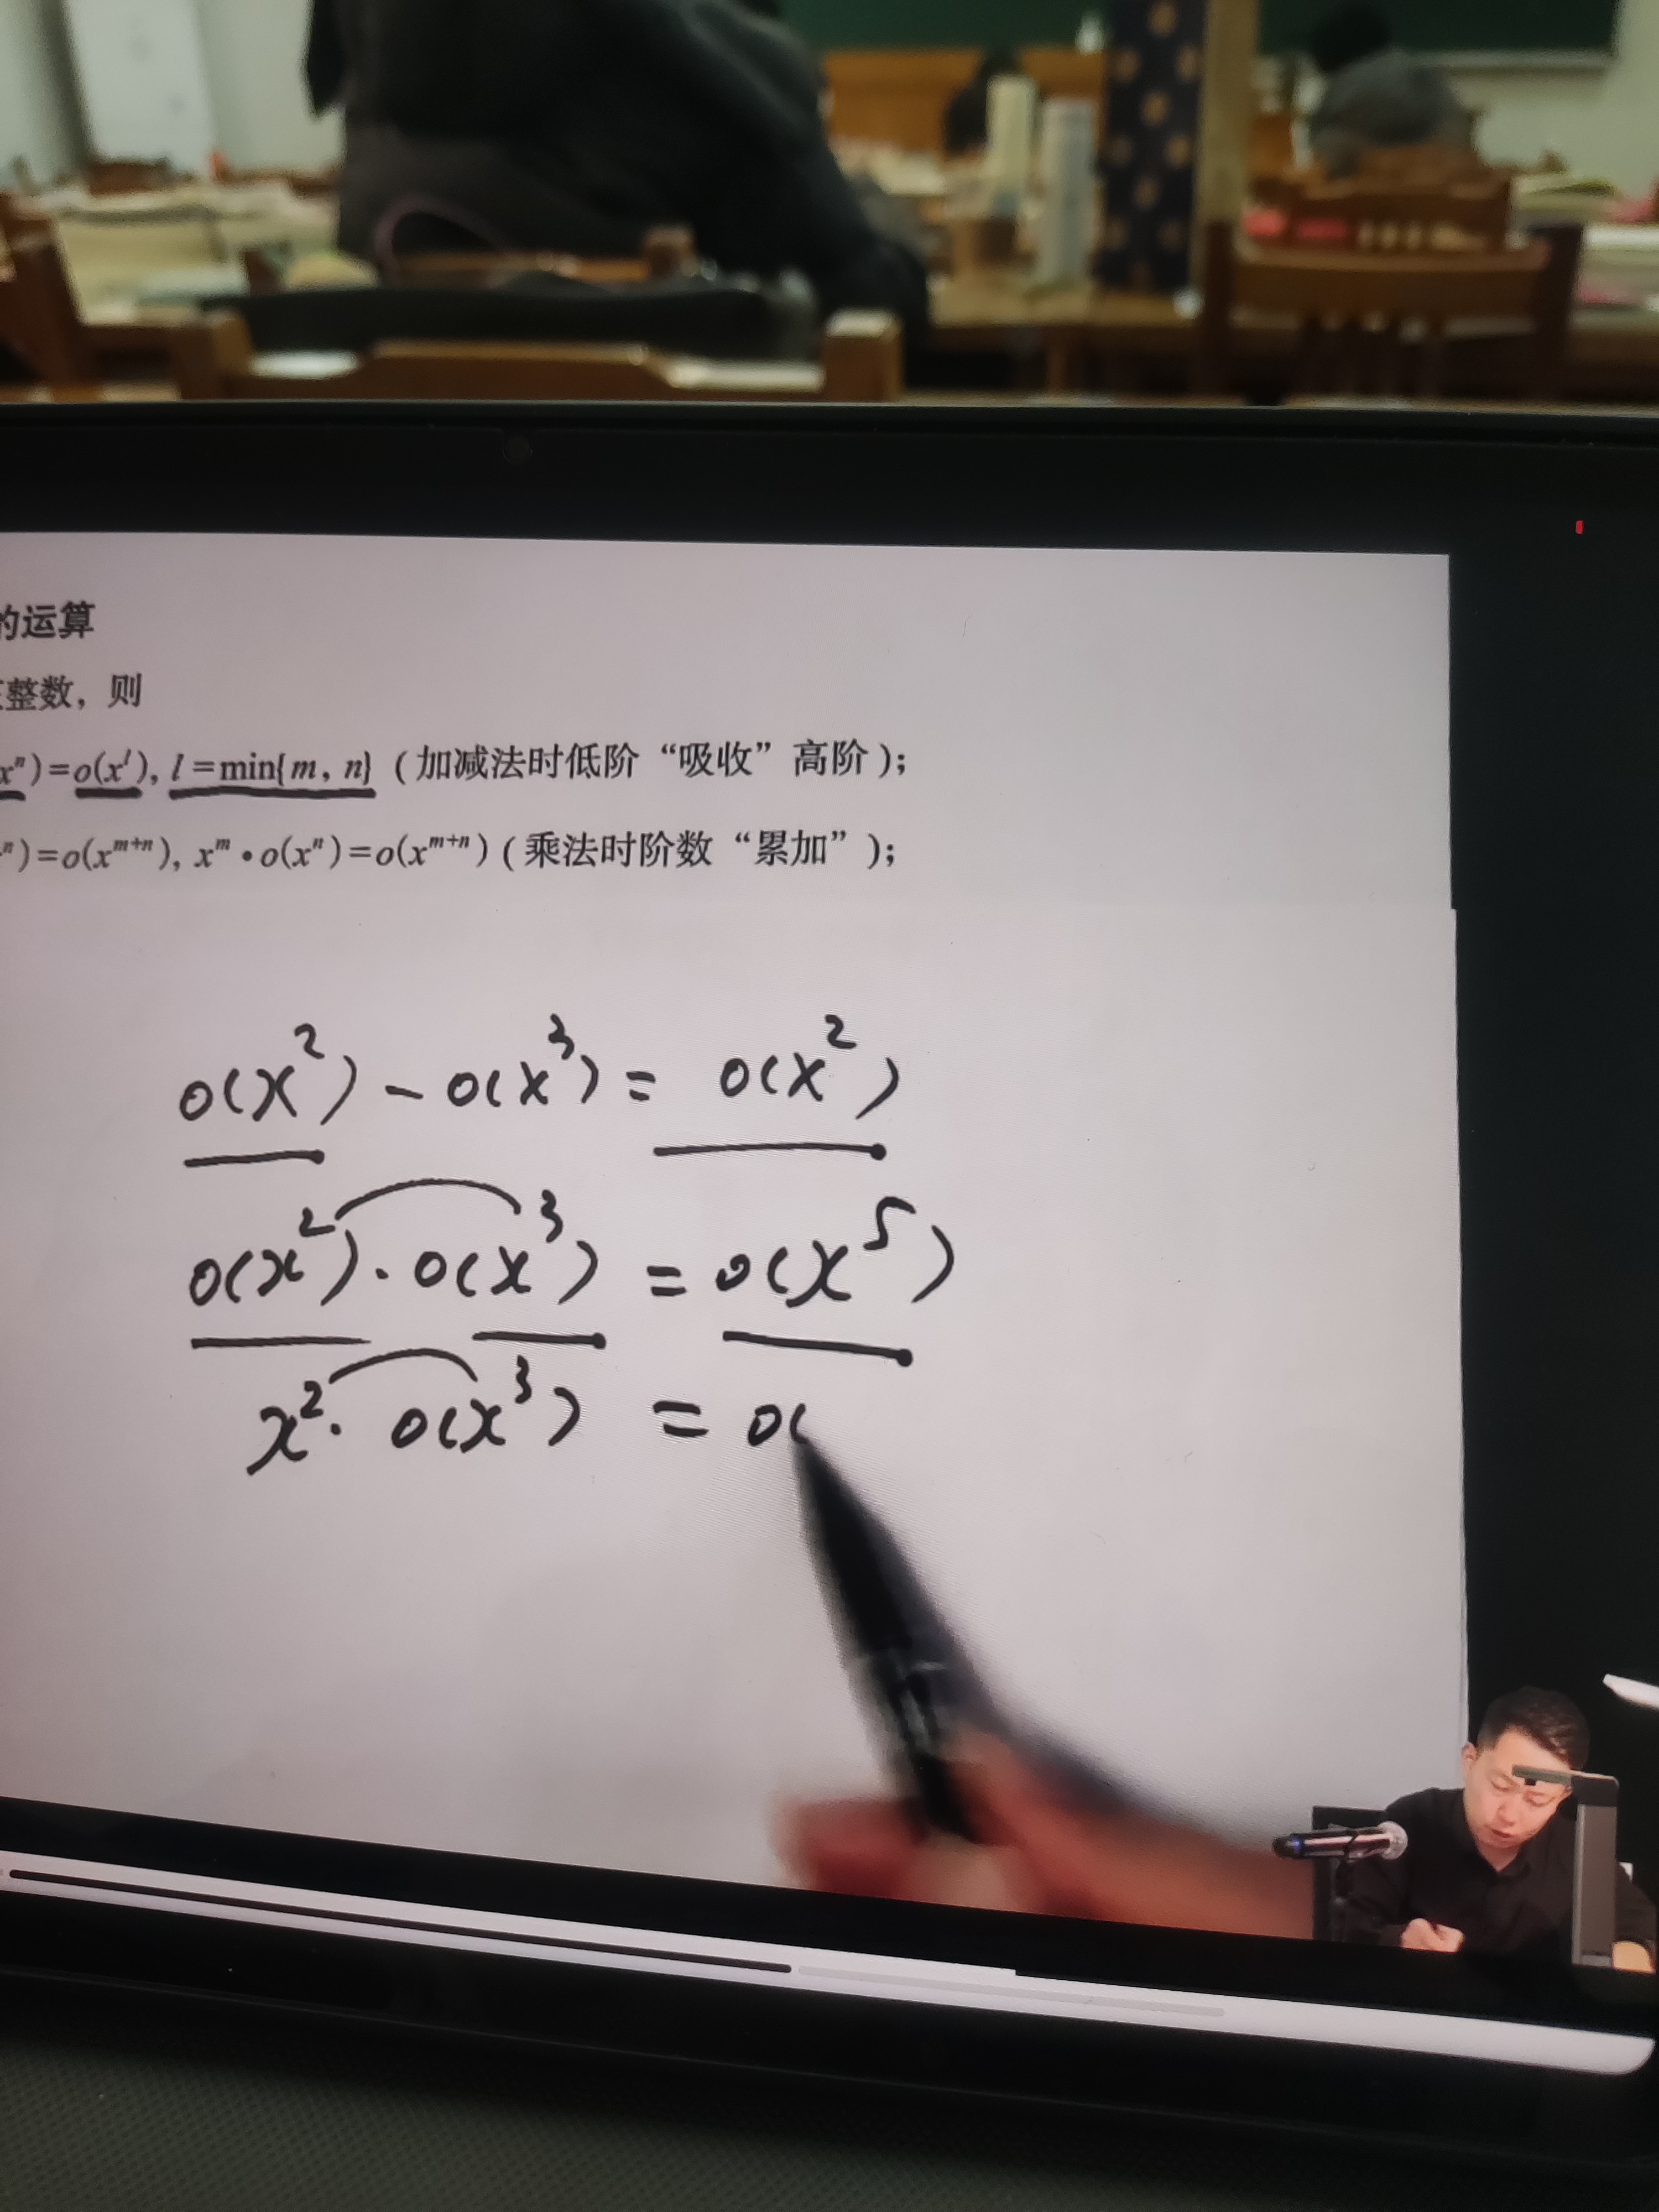 的运算
整数，则
xⁿ)=o(xˡ), l=min{m, n} (加减法时低阶“吸收”高阶);
ⁿ)=o(xᵐ⁺ⁿ), xᵐ•o(xⁿ)=o(xᵐ⁺ⁿ) (乘法时阶数“累加”);
o(x²) - o(x³) = o(x²)
o(x²)·o(x³) = o(x⁵)
x²· o(x³) = o(